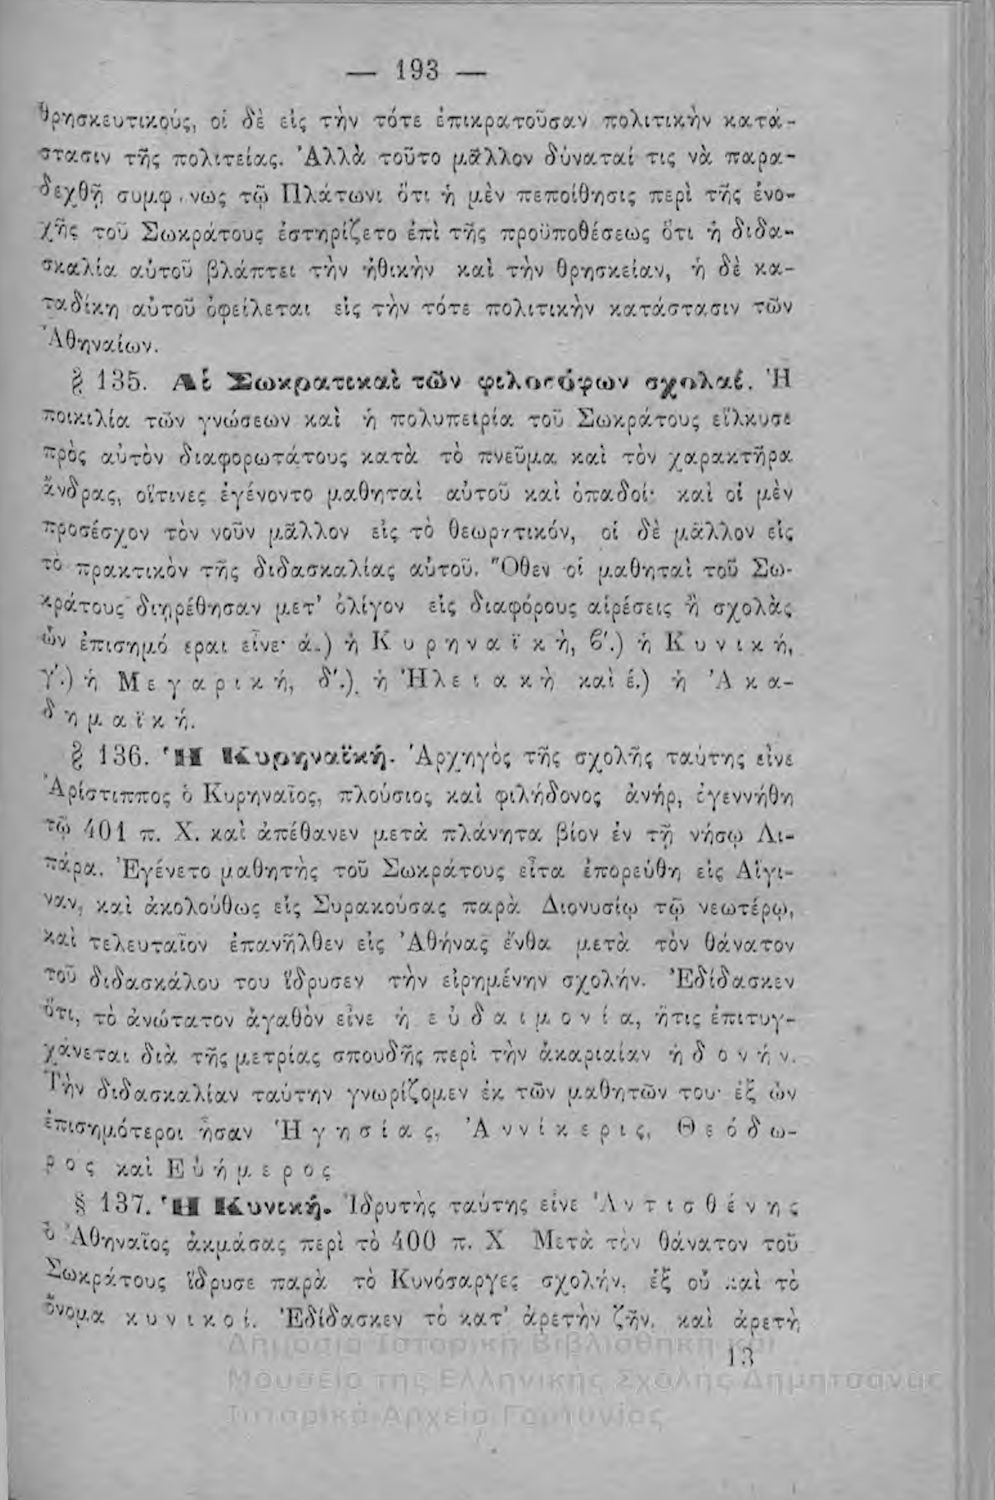 — 193 —
θρησκευτικούς, οἱ δὲ εἰς τὴν τότε ἐπικρατοῦσαν πολιτικὴν κατά-
στασιν τῆς πολιτείας. Ἀλλὰ τοῦτο μᾶλλον δύναταί τις νὰ παρα-
δεχθῇ συμφ.νως τῷ Πλάτωνι ὅτι ἡ μὲν πεποίθησις περὶ τῆς ἐνο-
χῆς τοῦ Σωκράτους ἐστηρίζετο ἐπὶ τῆς προϋποθέσεως ὅτι ἡ διδα-
σκαλία αὐτοῦ βλάπτει τὴν ἠθικὴν καὶ τὴν θρησκείαν, ἡ δὲ κα-
ταδίκη αὐτοῦ ὀφείλεται εἰς τὴν τότε πολιτικὴν κατάστασιν τῶν
Ἀθηναίων.
§ 135. Αἱ Σωκρατικαὶ τῶν φιλοσόφων σχολαί. Ἡ
ποικιλία τῶν γνώσεων καὶ ἡ πολυπειρία τοῦ Σωκράτους εἵλκυσε
πρὸς αὐτὸν διαφορωτάτους κατὰ τὸ πνεῦμα καὶ τὸν χαρακτῆρα
ἄνδρας, οἵτινες ἐγένοντο μαθηταὶ αὐτοῦ καὶ ὀπαδοί· καὶ οἱ μὲν
προσέσχον τὸν νοῦν μᾶλλον εἰς τὸ θεωρητικόν, οἱ δὲ μᾶλλον εἰς
τὸ πρακτικὸν τῆς διδασκαλίας αὐτοῦ. Ὅθεν οἱ μαθηταὶ τοῦ Σω-
κράτους διῃρέθησαν μετ' ὀλίγον εἰς διαφόρους αἱρέσεις ἢ σχολὰς
ὧν ἐπισημό εραι εἶνε· ά.) ἡ Κυρηναϊκὴ, β΄.) ἡ Κυνική,
γ΄.) ἡ Μεγαρική, δ΄.) ἡ Ἠλειακὴ καὶ έ.) ἡ Ἀκα-
δημαϊκή.
§ 136. Ἡ Κυρηναϊκή. Ἀρχηγὸς τῆς σχολῆς ταύτης εἶνε
Ἀρίστιππος ὁ Κυρηναῖος, πλούσιος καὶ φιλήδονος ἀνήρ, ἐγεννήθη
τῷ 401 π. Χ. καὶ ἀπέθανεν μετὰ πλάνητα βίον ἐν τῇ νήσῳ Λι-
πάρα. Ἐγένετο μαθητὴς τοῦ Σωκράτους εἶτα ἐπορεύθη εἰς Αἴγι-
ναν, καὶ ἀκολούθως εἰς Συρακούσας παρὰ Διονυσίῳ τῷ νεωτέρῳ,
καὶ τελευταῖον ἐπανῆλθεν εἰς Ἀθήνας ἔνθα μετὰ τὸν θάνατον
τοῦ διδασκάλου του ἵδρυσεν τὴν εἰρημένην σχολήν. Ἐδίδασκεν
ὅτι, τὸ ἀνώτατον ἀγαθὸν εἶνε ἡ εὐδαιμονία, ἥτις ἐπιτυγ-
χάνεται διὰ τῆς μετρίας σπουδῆς περὶ τὴν ἀκαριαίαν ἡδονήν.
Τὴν διδασκαλίαν ταύτην γνωρίζομεν ἐκ τῶν μαθητῶν του· ἐξ ὧν
ἐπισημότεροι ἦσαν Ἡγησίας, Ἀννίκερις, Θεόδω-
ρος καὶ Εὐήμερος
§ 137. Ἡ Κυνική. Ἱδρυτὴς ταύτης εἶνε Ἀντισθένης
ὁ Ἀθηναῖος ἀκμάσας περὶ τὸ 400 π. Χ Μετὰ τὸν θάνατον τοῦ
Σωκράτους ἵδρυσε παρὰ τὸ Κυνόσαργες σχολήν, ἐξ οὗ καὶ τὸ
ὄνομα κυνικοί. Ἐδίδασκεν τὸ κατ' ἀρετὴν ζῆν, καὶ ἀρετὴ
13
Δημόσια Ιστορική Βιβλιοθήκη και
Μουσείο της Ελληνικής Σχολής Δημητσάνας
Ιστορικό Αρχείο Γορτυνίας